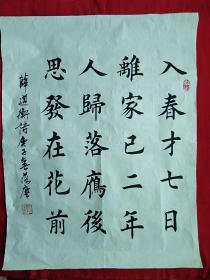 入春才七日
離家已二年
人歸落鴈後
思發在花前
薛道衡詩庚子春